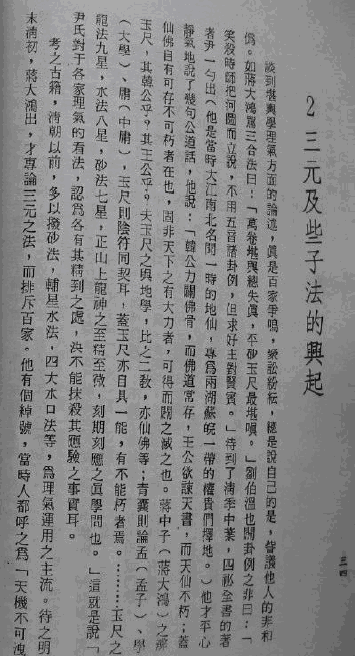 三四
2 三元及些子法的興起
談到堪輿學理氣方面的論述，眞是百家爭鳴，衆訟紛紜，總是說自己的是，譏議他人的非和
僞。如蔣大鴻駡三合法曰：「萬卷堪輿總失眞，平砂玉尺最堪嗔。」劉伯溫也闢卦例之非曰：「
笑殺時師把河圖而立說，不用五音諸卦例，但求好主對賢賓。」待到了清季中葉，四祕全書的著
者尹一勺出（他是當時大江南北名聞一時的地仙，專爲兩湖蘇皖一帶的權貴們擇地。）他才平心
靜氣地說了幾句公道話，他說：「韓公力闢佛骨，而佛道常存，王公欲諫天書，而天仙不朽；蓋
仙佛自有可存不可朽者在也，固非天下之有大力者，可得而闢之滅之也。蔣中子（蔣大鴻）之
玉尺，其韓公乎？其王公乎？夫玉尺之與地學，比之二敎，亦仙佛等；青囊則論孟（孟子）、學
（大學）、庸（中庸），玉尺則陰符同契耳，蓋玉尺亦目具一能，有不能朽者焉。………玉尺之
龍法九星，水法八星，砂法七星，正山上龍神之至精至微，刻期刻應之眞學問也。」這就是說
尹氏對于各家理氣的看法，認爲各有其精到之處，決不能抹殺其應驗之事實耳。
考之古籍，清朝以前，多以撥砂法，輔星水法，四大水口法等，爲理氣運用之主流。待之明
末清初，蔣大鴻出，才專論三元之法，而排斥百家。他有個綽號，當時人都呼之爲「天機不可洩